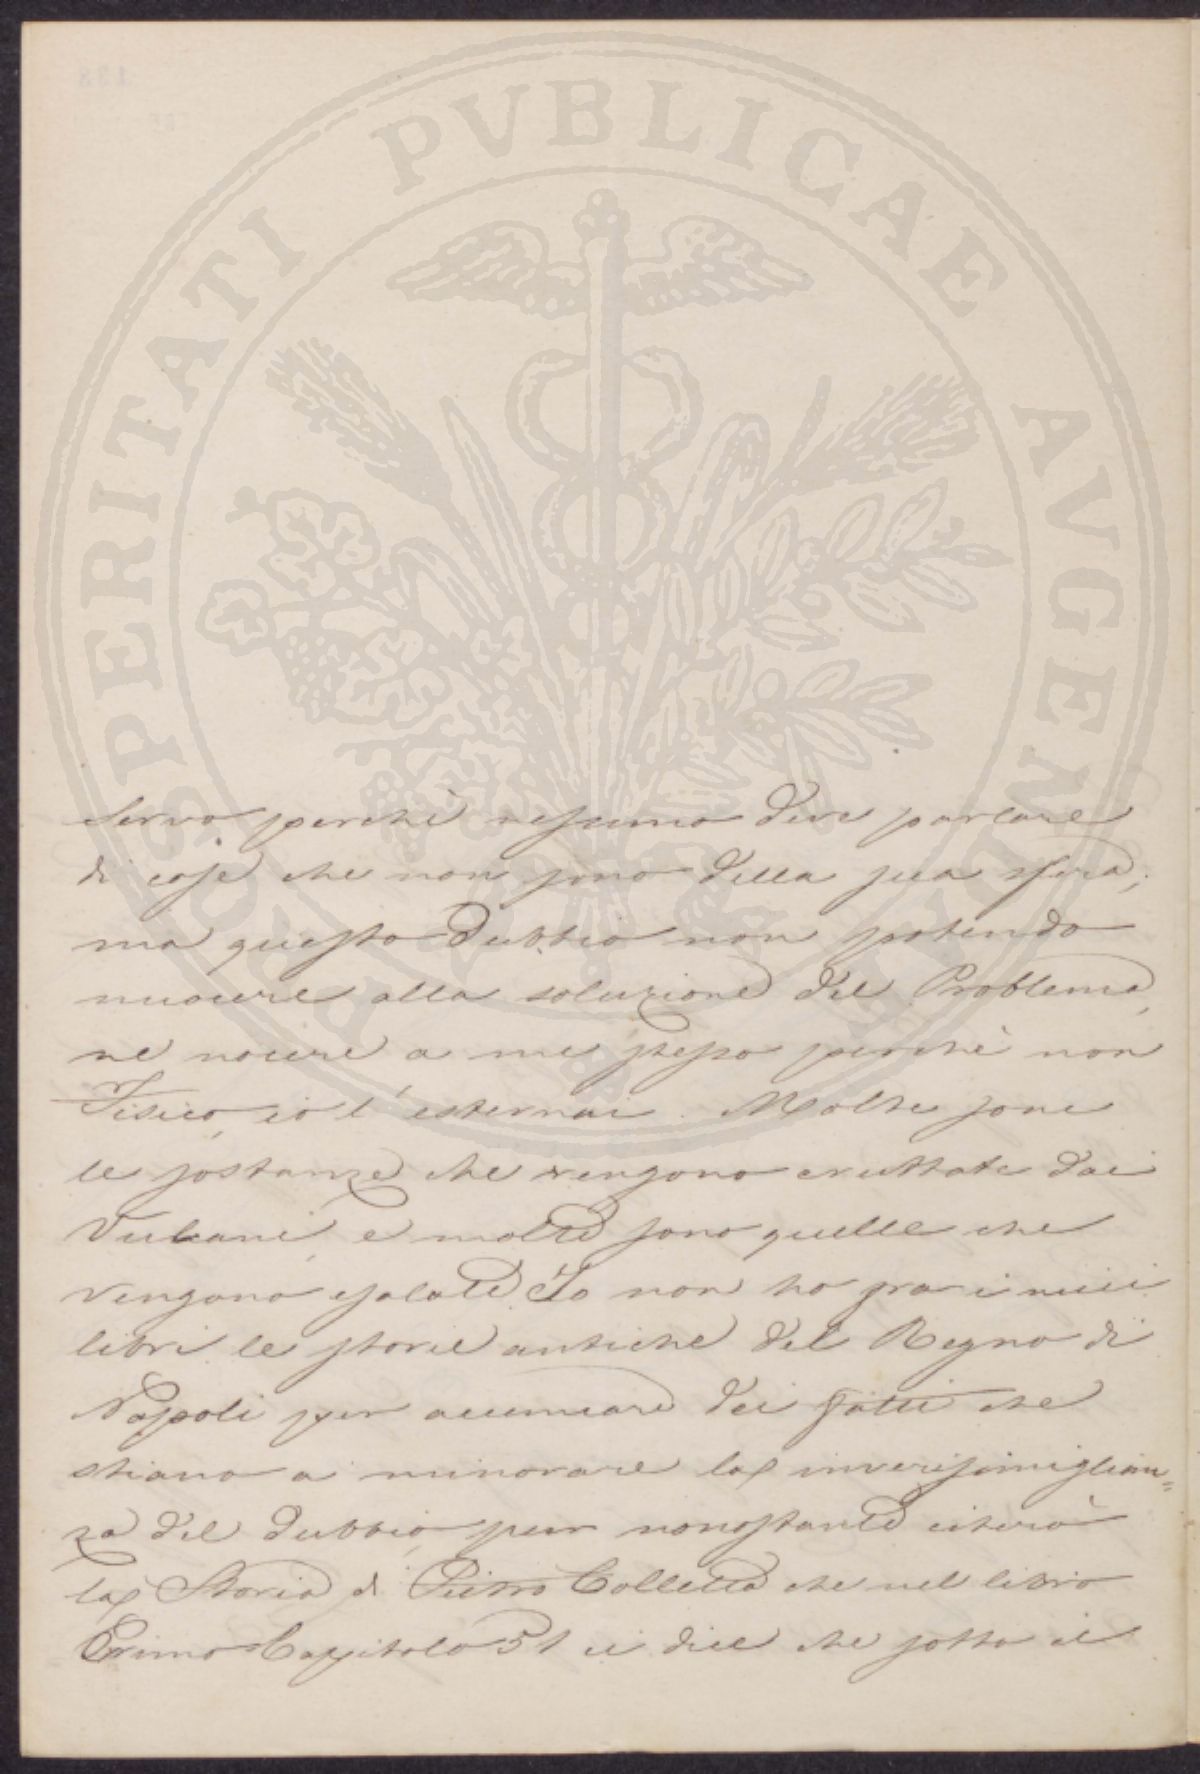 PROSPERITATI PVBLICAE AVGENDAE
servo, perchè nessuno deve parlare
di cose che non sono della sua sfera;
ma questo dubbio non potendo
nuocere alla soluzione del Problema,
ne nocere a me stesso perchè non
Fisico, io l'esternai. Molte sone
le sostanze che vengono eruttate dai
Vulcani, e molte sono quelle che
vengono esalate. Io non ho fra i miei
libri le storie antiche del Regno di
Napoli per accennare dei fatti che
stiano a minorare la inverisimiglian=
za del dubbio, pur nonostante citerò
la Storia di Pietro Colletta che nel libro
Primo Capitolo 51 ci dice che sotto il